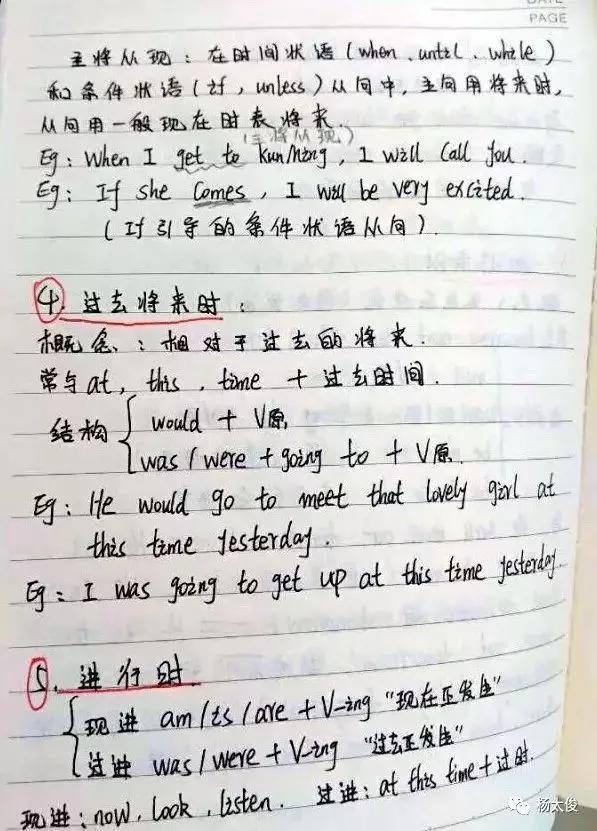 DATE
PAGE
主将从现：在时间状语（when、until、while）
和条件状语（if，unless）从句中，主句用将来时，
从句用一般现在时表将来.
（主将从现）
Eg：When I get to KunMing，I will call you.
Eg：If she comes，I will be very excited.
（If引导的条件状语从句）.
4. 过去将来时：
概念：相对于过去的将来.
常与at，this，time + 过去时间.
结构 { would + V原
was / were + going to + V原.
Eg：He would go to meet that lovely girl at
this time yesterday.
Eg：I was going to get up at this time yesterday.
5. 进行时
{ 现进 am/is/are + V-ing “现在正发生”
过进 was/were + V-ing “过去正发生”
现进：now，look，listen. 过进：at this time+过时.
杨太俊